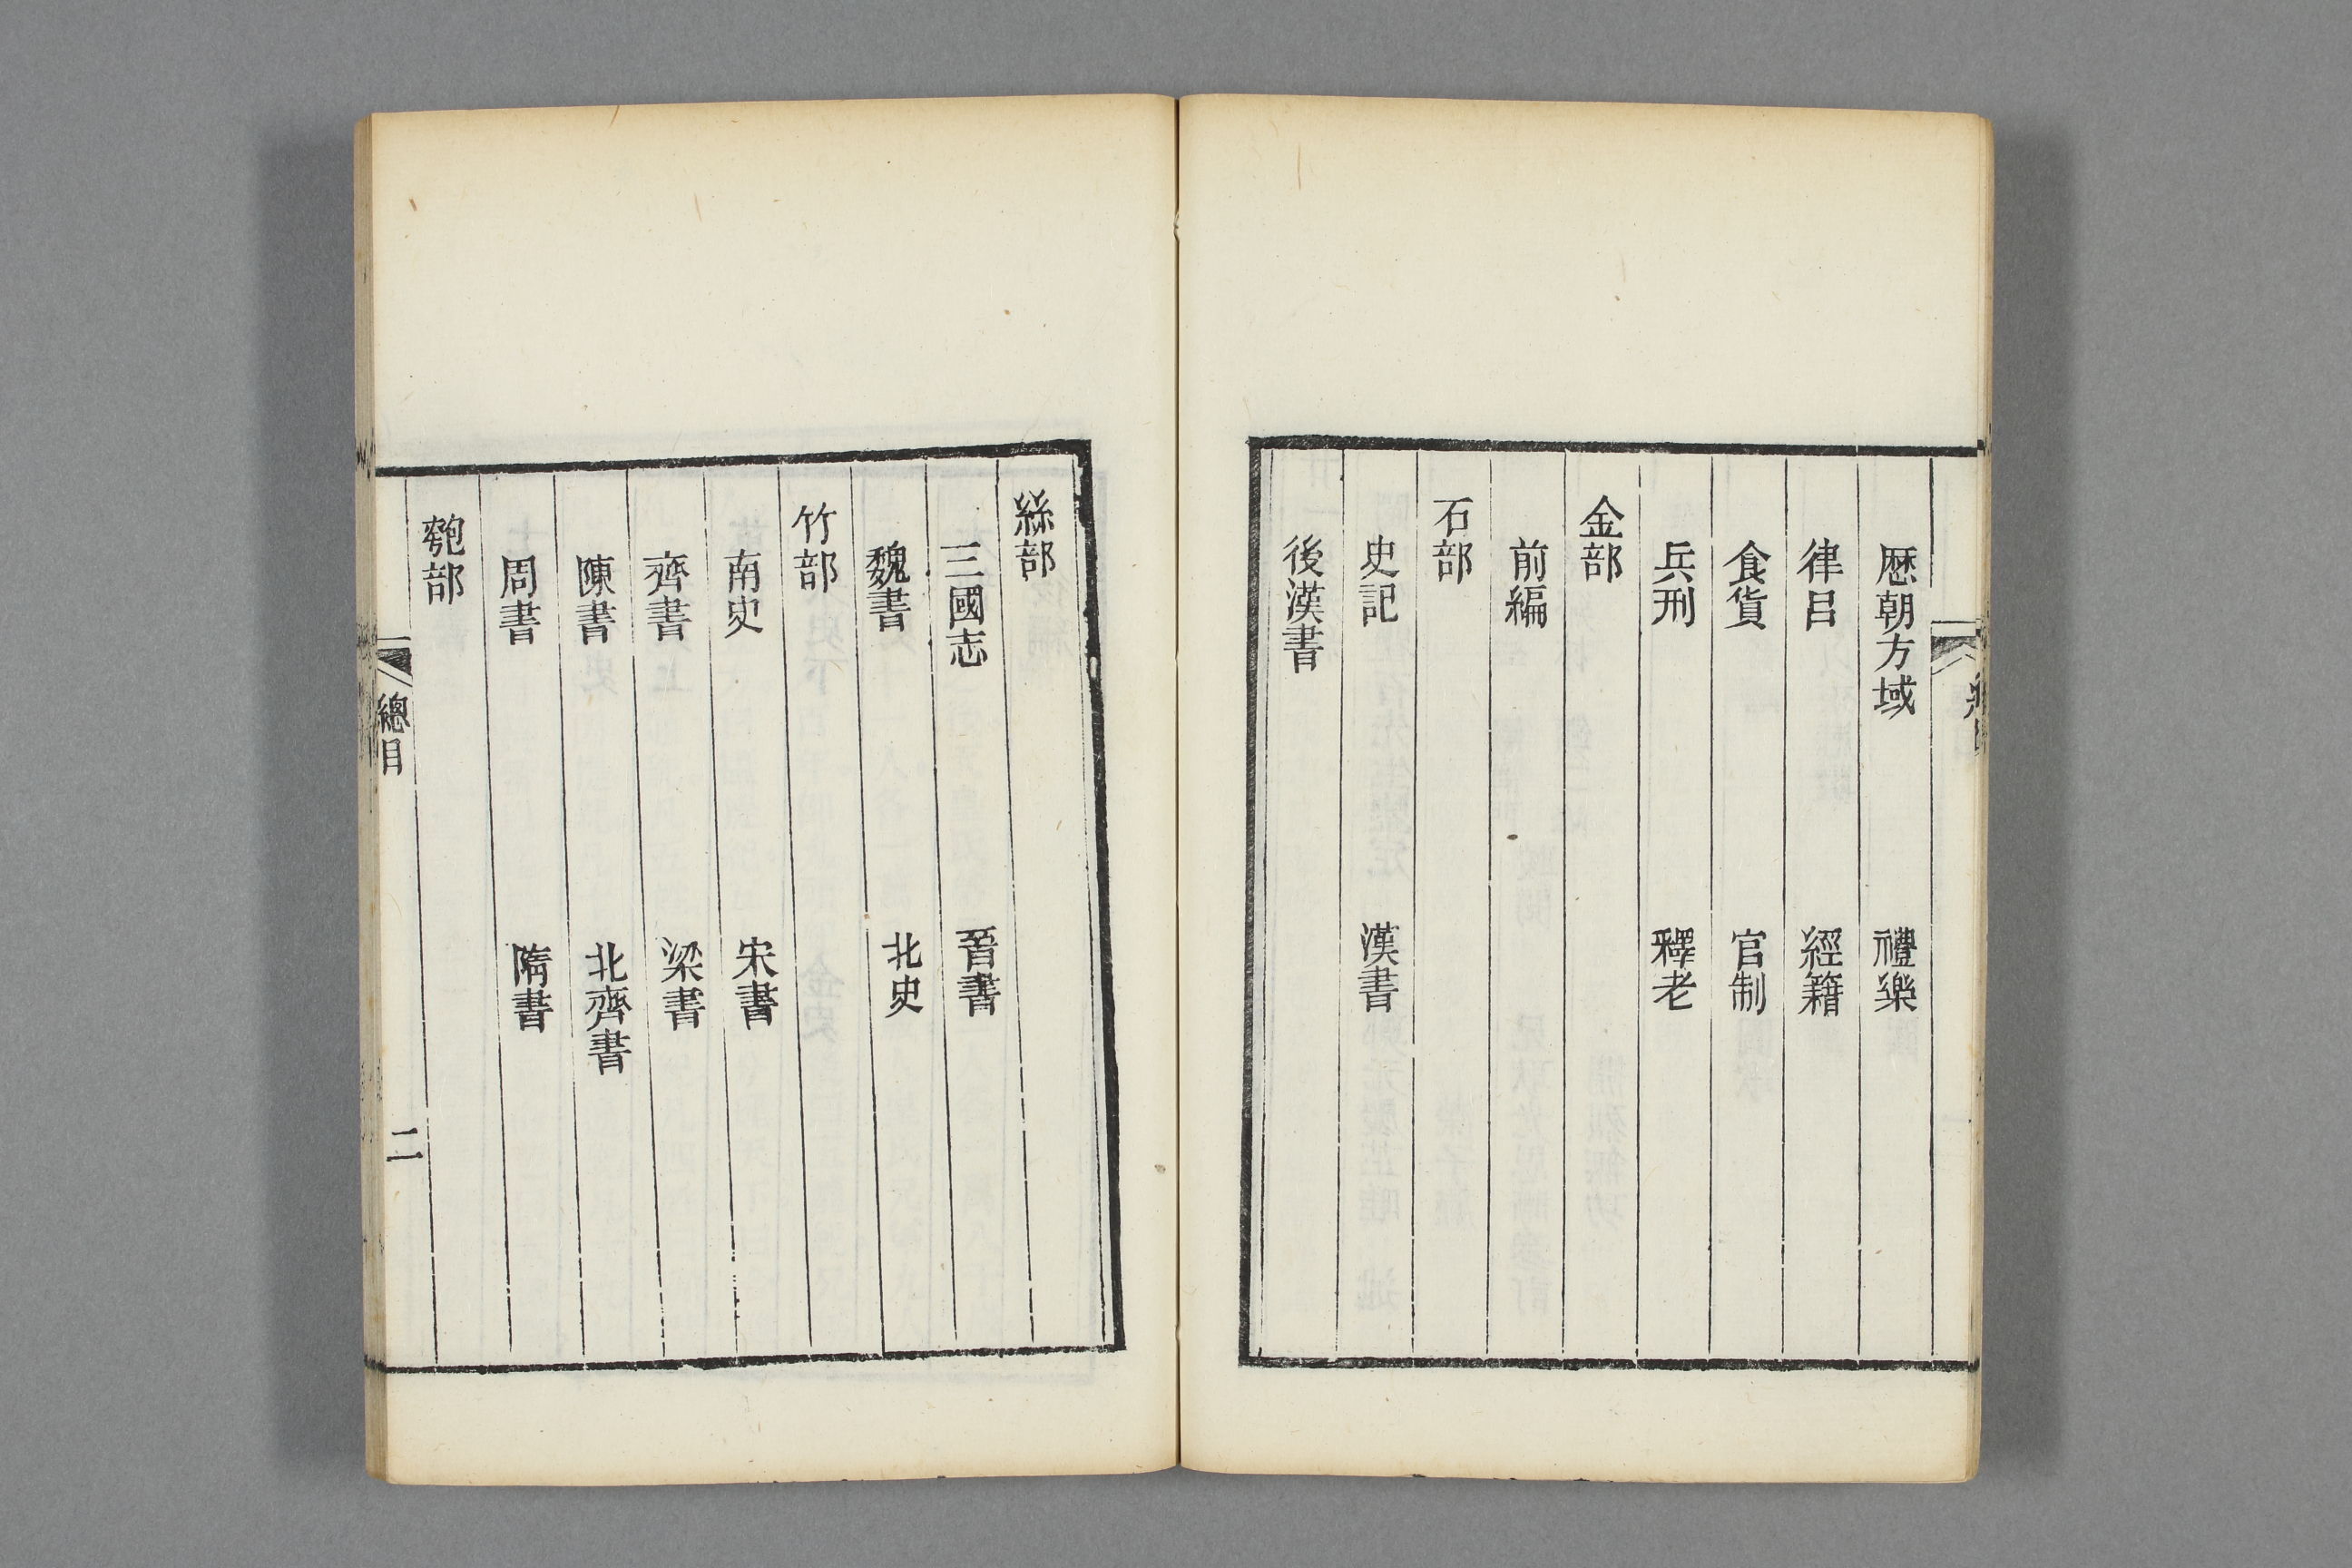 歷朝方域　禮樂
律呂　經籍
食貨　官制
兵刑　釋老
金部
前編
石部
史記　漢書
後漢書
絲部
三國志　晉書
魏書　北史
竹部
南史　宋書
齊書　梁書
陳書　北齊書
周書　隋書
匏部
總目　二